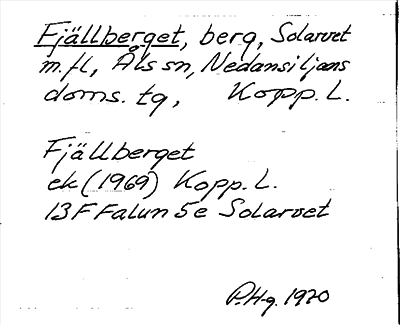 Fjällberget, berg, Solarvet
m.fl, Åls sn, Nedansiljans
doms. tg, Kopp. L.
Fjällberget
ek (1969) Kopp. L.
13F Falun 5e Solarvet
P.H-g. 1970